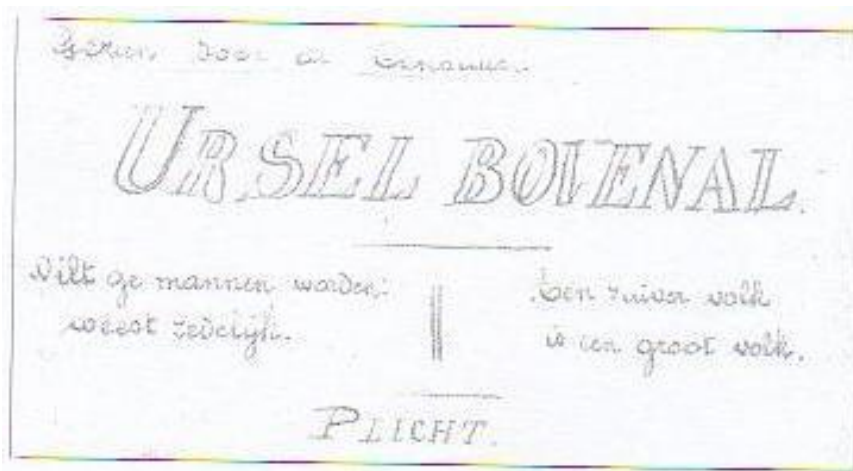 door
URSEL BOVENAL.
Wilt ge mannen worden:
weest zedelijk.
Een zuiver volk
is een groot volk.
PLICHT.